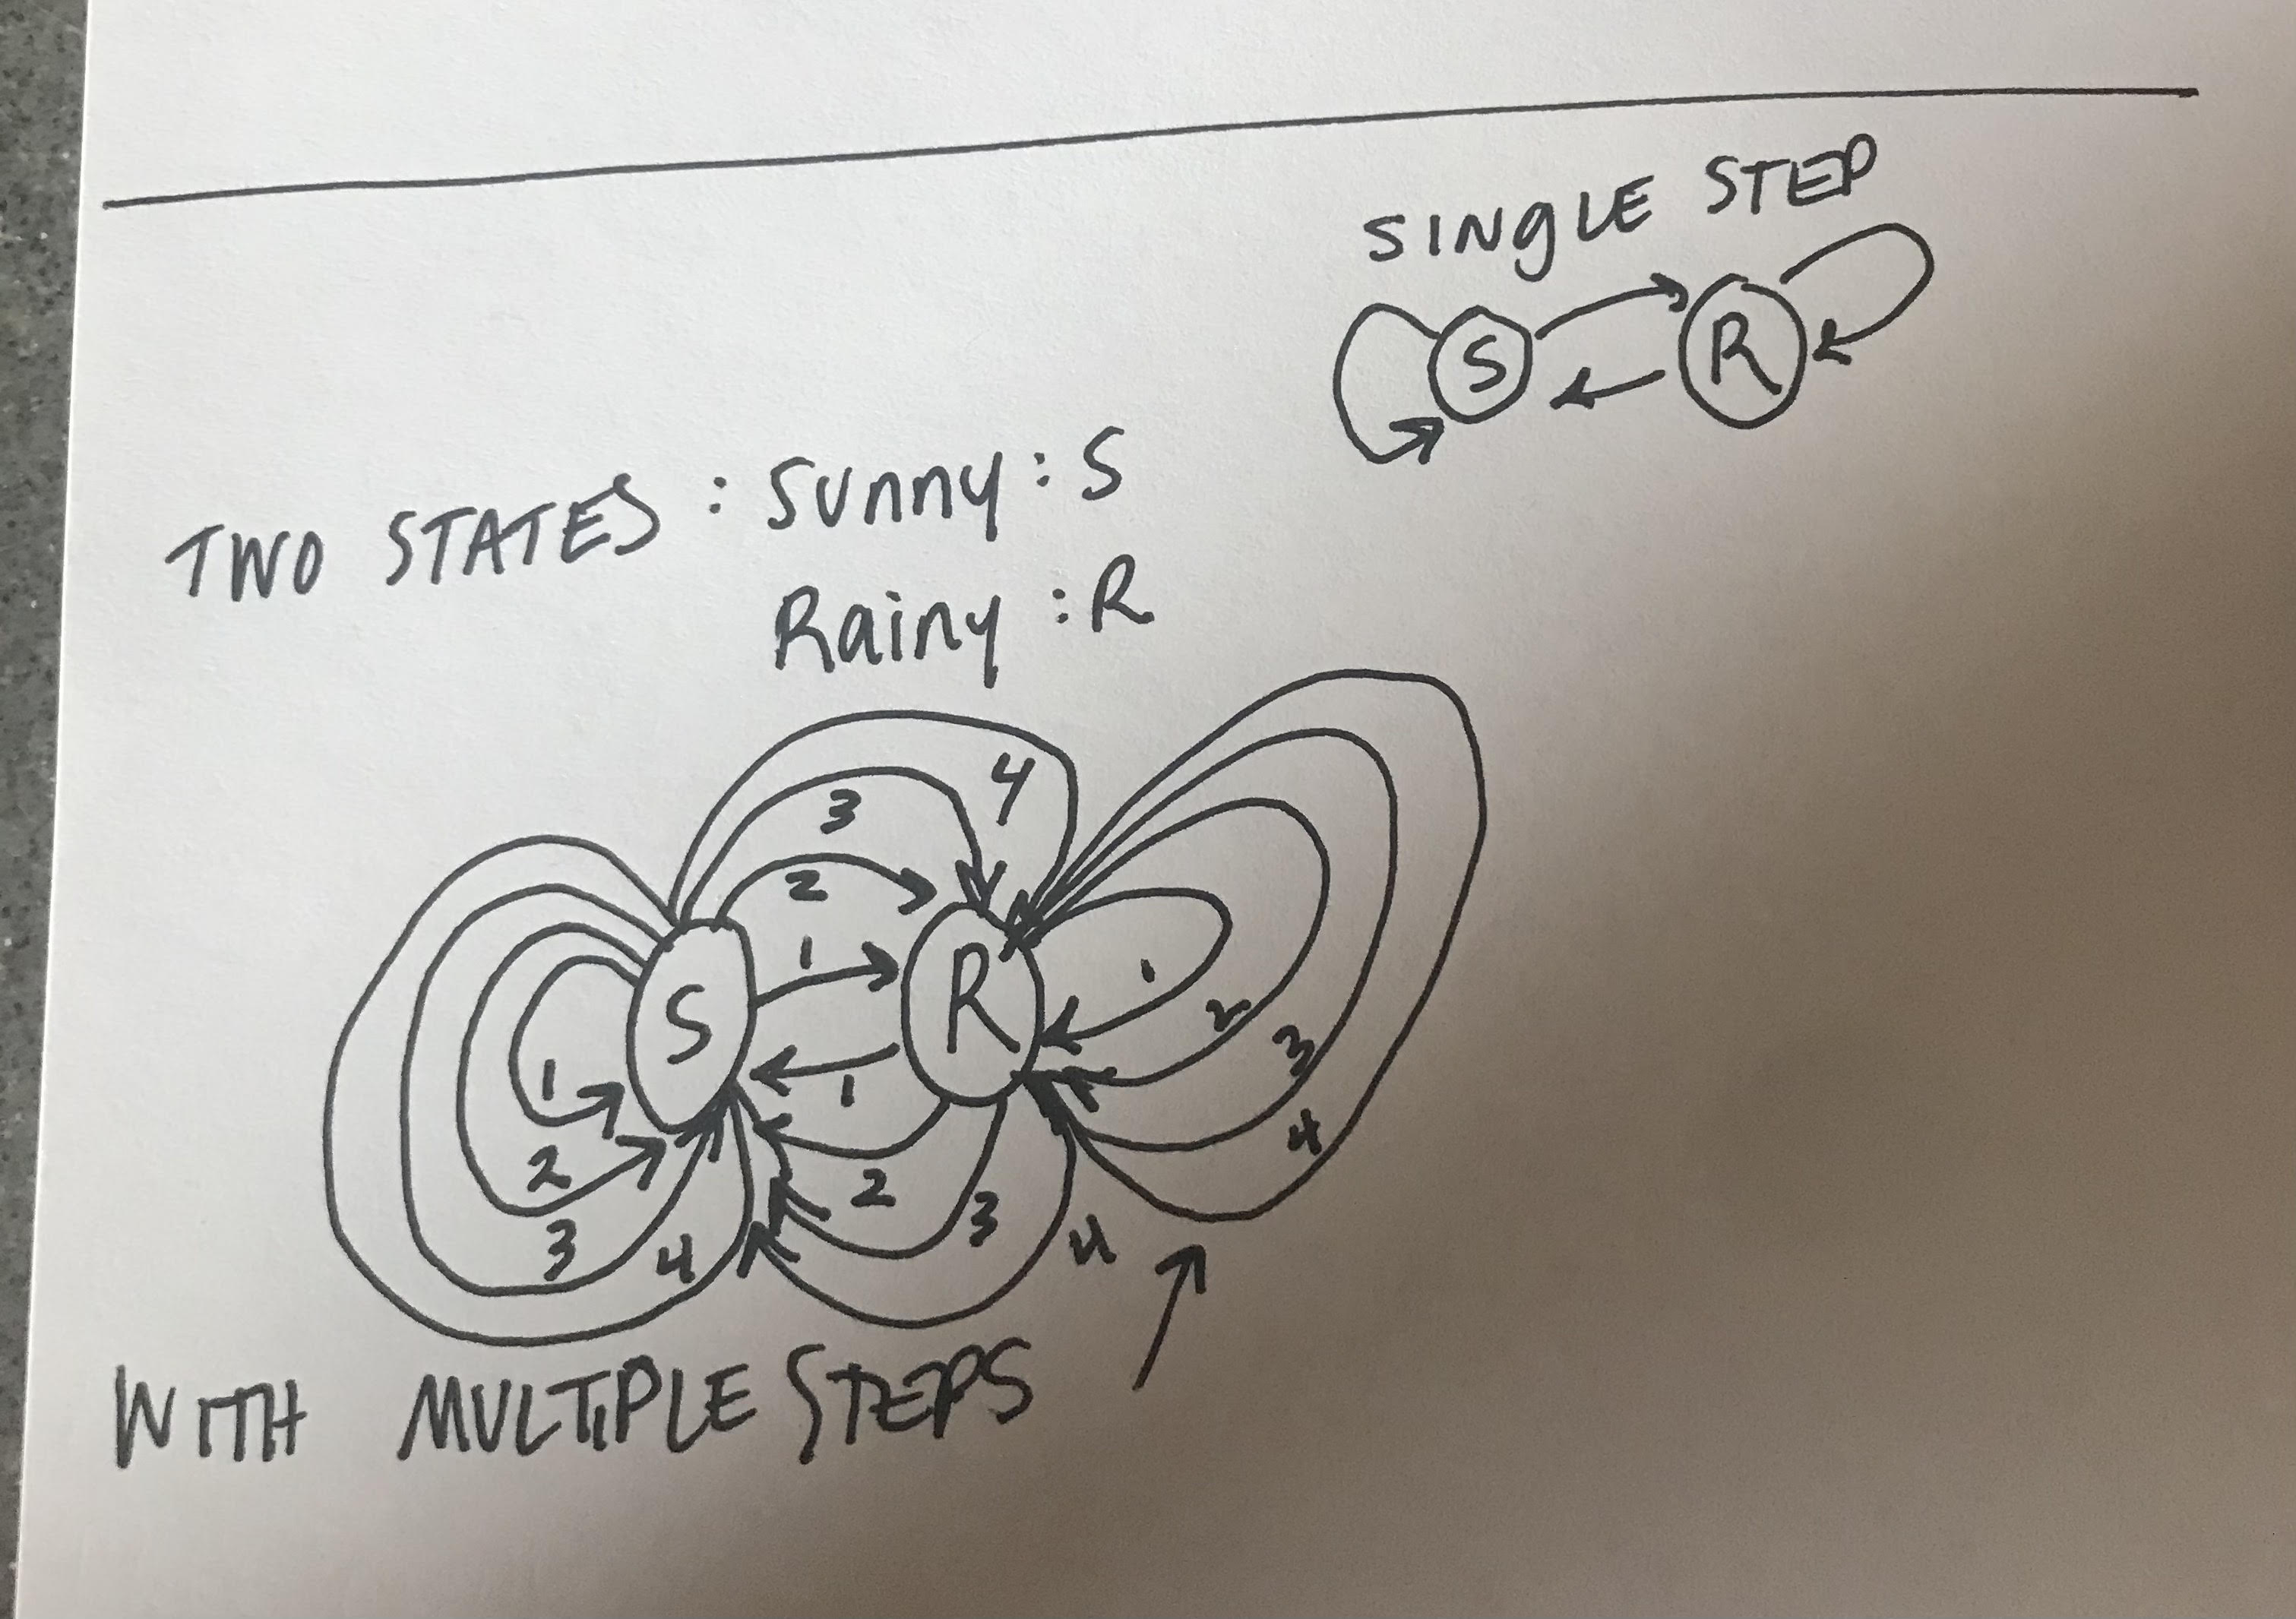 SINgLE STEP
S R
TWO STATES : Sunny : S
Rainy : R
4
3
2
1
S R
1
1
1
2
2
2
3
3
3
4
4
4
WITH MULTIPLE STEPS